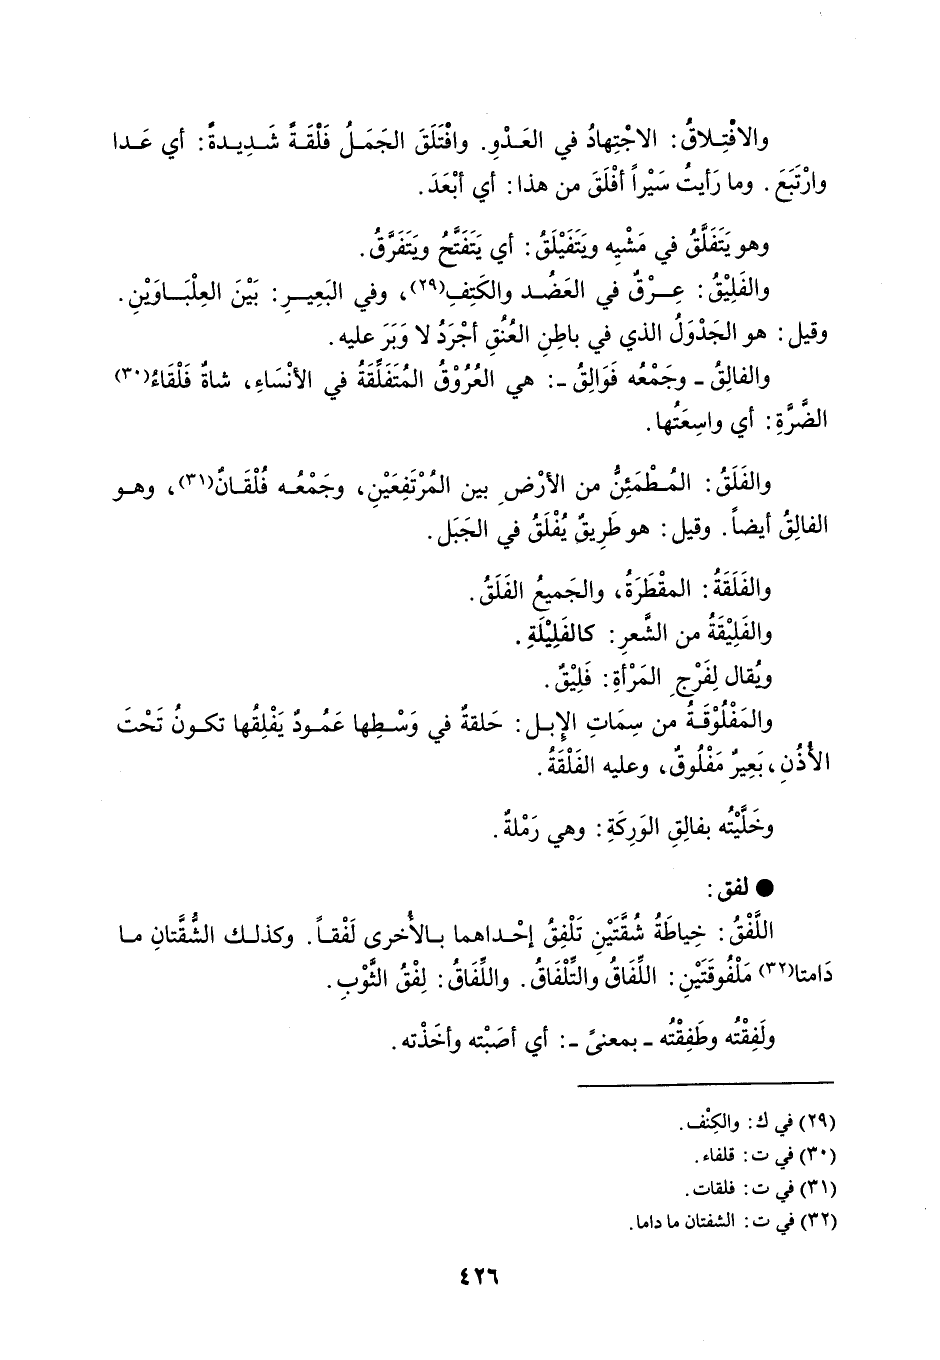 والافْتِلاقُ: الاجْتِهادُ في العَدْوِ. وافْتَلَقَ الجَمَلُ فَلْقَةً شَدِيدةً: أي عَدا
وارْتَبَعَ. وما رَأيتُ سَيْراً أفْلَقَ من هذا: أي أبْعَدَ.
وهو يَتَفَلَّقُ في مَشْيِه ويَتَفَيْلَقُ: أي يَتَفَتَّحُ ويَتَفَرَّقُ.
والفَلِيْقُ: عِرْقٌ في العَضُد والكَتِفِ(٢٩)، وفي البَعِيرِ: بَيْنَ العِلْبَاوَيْنِ.
وقيل: هو الجَدْوَلُ الذي في باطِنِ العُنُقِ أجْرَدُ لا وَبَرَ عليه.
والفالِقُ - وجَمْعُه فَوَالِقُ -: هي العُرُوْقُ المُتَفَلِّقَةُ في الأنْسَاءِ، شاةٌ فَلْقَاءُ(٣٠)
الضَّرَّةِ: أي واسِعَتُها.
والفَلَقُ: المُطْمَئِنُّ من الأرْضِ بين المُرْتَفِعَيْنِ، وجَمْعُه فُلْقَانٌ(٣١)، وهو
الفالِقُ أيضاً. وقيل: هو طَرِيقٌ يُفْلَقُ في الجَبَل.
والفَلَقَةُ: المِقْطَرَةُ، والجَميعُ الفَلَقُ.
والفَلِيْقَةُ من الشَّعرِ: كالفَلِيْلَةِ.
ويُقال لِفَرْجِ المَرْأةِ: فَلِيْقٌ.
والمَفْلُوْقَةُ من سِمَاتِ الإِبل: حَلقةٌ في وَسْطِها عَمُودٌ يَفْلِقُها تكونُ تَحْتَ
الأُذُنِ، بَعِيرٌ مَفْلُوقٌ، وعليه الفَلْقَةُ.
وخَلَّيْتُه بفالِقِ الوَرِكَةِ: وهي رَمْلةٌ.
● لفق:
اللَّفْقُ: خِياطَةُ شُقَّتَيْنِ تَلْفِقُ إحْداهما بالأُخرى لَفْقاً. وكذلك الشُّقَّتانِ ما
دَامتا(٣٢) مَلْفُوقَتَيْنِ: اللِّفَاقُ والتِّلْفَاقُ. واللِّفَاقُ: لِفْقُ الثَّوْبِ.
ولَفِقْتُه وطَفِقْتُه - بمعنىً -: أي أصَبْته وأخَذْته.
(٢٩) في ك: والكِنْف.
(٣٠) في ت: قلفاء.
(٣١) في ت: فلقات.
(٣٢) في ت: الشفتان ما داما.
٤٢٦